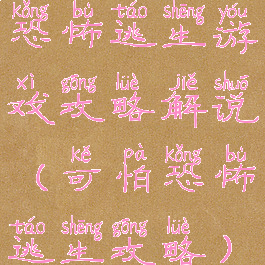 kǒng bù táo shēng yóu
恐怖逃生游
xì gōng lüè jiě shuō
戏攻略解说
kě pà kǒng bù
（可怕恐怖
táo shēng gōng lüè
逃生攻略）